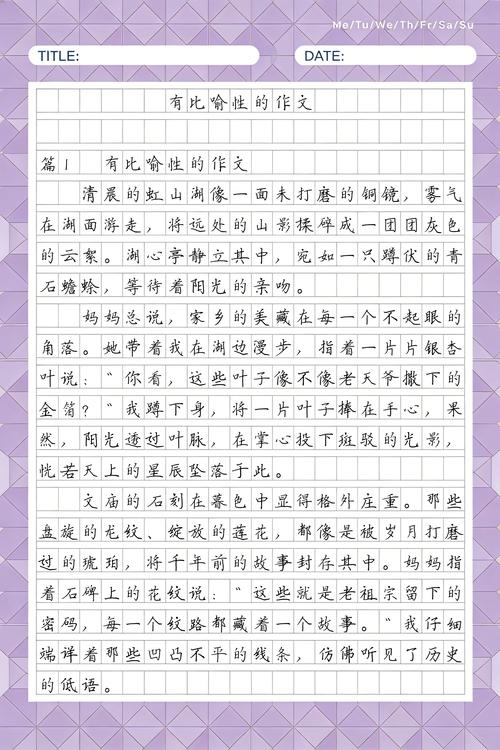 Me/Tu/We/Th/Fr/Sa/Su
TITLE: DATE:
有比喻性的作文
篇1 有比喻性的作文
清晨的虹山湖像一面未打磨的铜镜，雾气
在湖面游走，将远处的山影揉碎成一团团灰色
的云絮。湖心亭静立其中，宛如一只蹲伏的青
石蟾蜍，等待着阳光的亲吻。
妈妈总说，家乡的美藏在每一个不起眼的
角落。她带着我在湖边漫步，指着一片片银杏
叶说："你看，这些叶子像不像老天爷撒下的
金箔？"我蹲下身，将一片叶子捧在手心，果
然，阳光透过叶脉，在掌心投下斑驳的光影，
恍若天上的星辰坠落于此。
文庙的石刻在暮色中显得格外庄重。那些
盘旋的龙纹、绽放的莲花，都像是被岁月打磨
过的琥珀，将千年前的故事封存其中。妈妈指
着石碑上的花纹说："这些就是老祖宗留下的
密码，每一个纹路都藏着一个故事。"我仔细
端详着那些凹凸不平的线条，仿佛听见了历史
的低语。